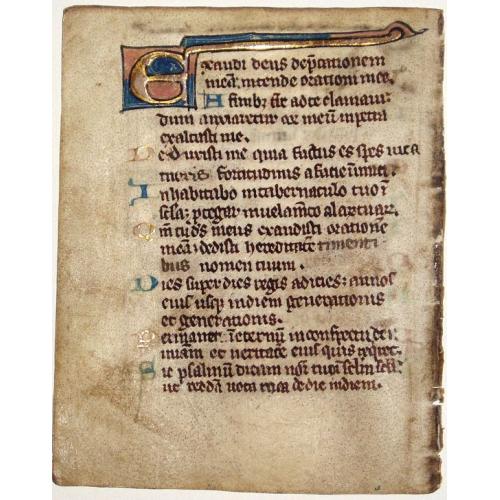 Exaudi deus dep̄cationem
meā: intende orationi mee.
A finibꝫ t̄re ad te clamaui:
dum anxiaretur cor meū in petra
exaltasti me.
Deduxisti me quia factus es spes mea
turris fortitudinis a facie inimici
Inhabitabo in tabernaculo tuo ī
scl̄a: ꝓtegar in uelam̄to alarū tuar̄.
Qm̄ tu ds̄ meus exaudisti oratione
meā: dedisti hereditatē timenti
bus nomen tuum.
Dies super dies regis adicies: annos
eius usqꝫ in diem generationis
et generationis.
Permanet in eternū in conspectu dei:
misam et ueritatē eius quis requiret.
Sic psalmū dicam noī tuo ī sclm̄ scl̄i:
ut reddā uota mea de die in diem.